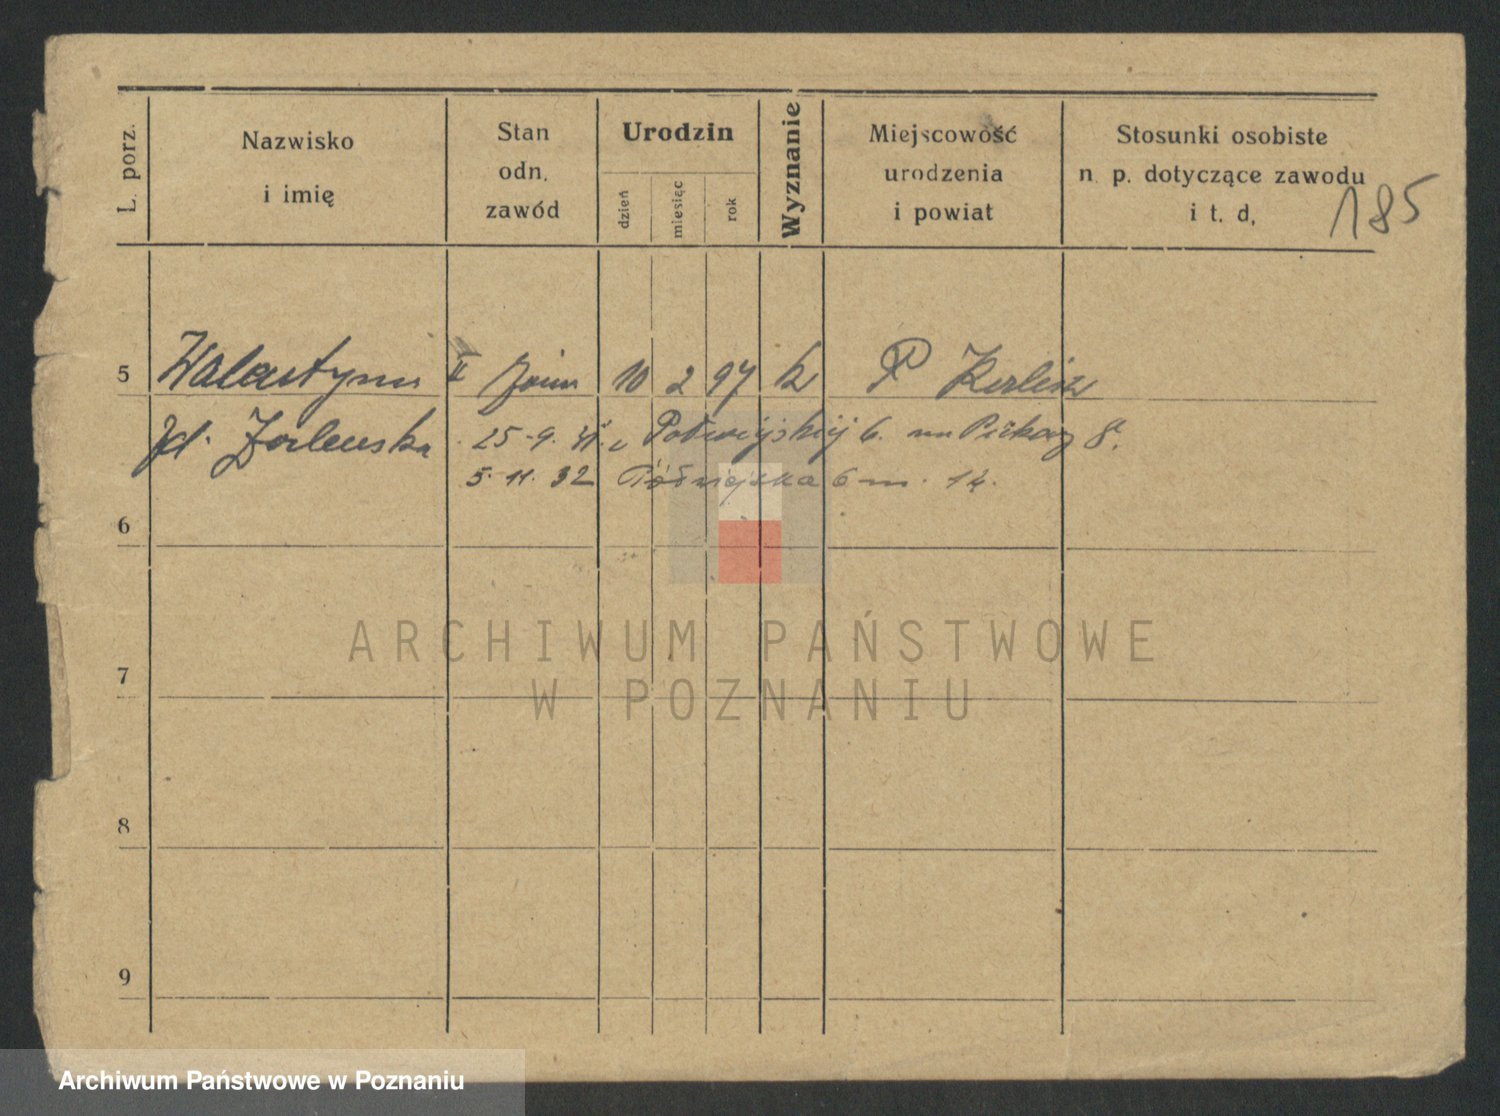 L. porz.
Nazwisko
i imię
Stan
odn.
zawód
Urodzin
dzień
miesiąc
rok
Wyznanie
Miejscowość
urodzenia
i powiat
Stosunki osobiste
n. p. dotyczące zawodu
i t. d.
185
5 Walentyna II 10 2 97 k P
25. 9. 6. 8.
5. 11. 32 6 m. 14.
6
ARCHIWUM PAŃSTWOWE
7
W POZNANIU
8
9
Archiwum Państwowe w Poznaniu